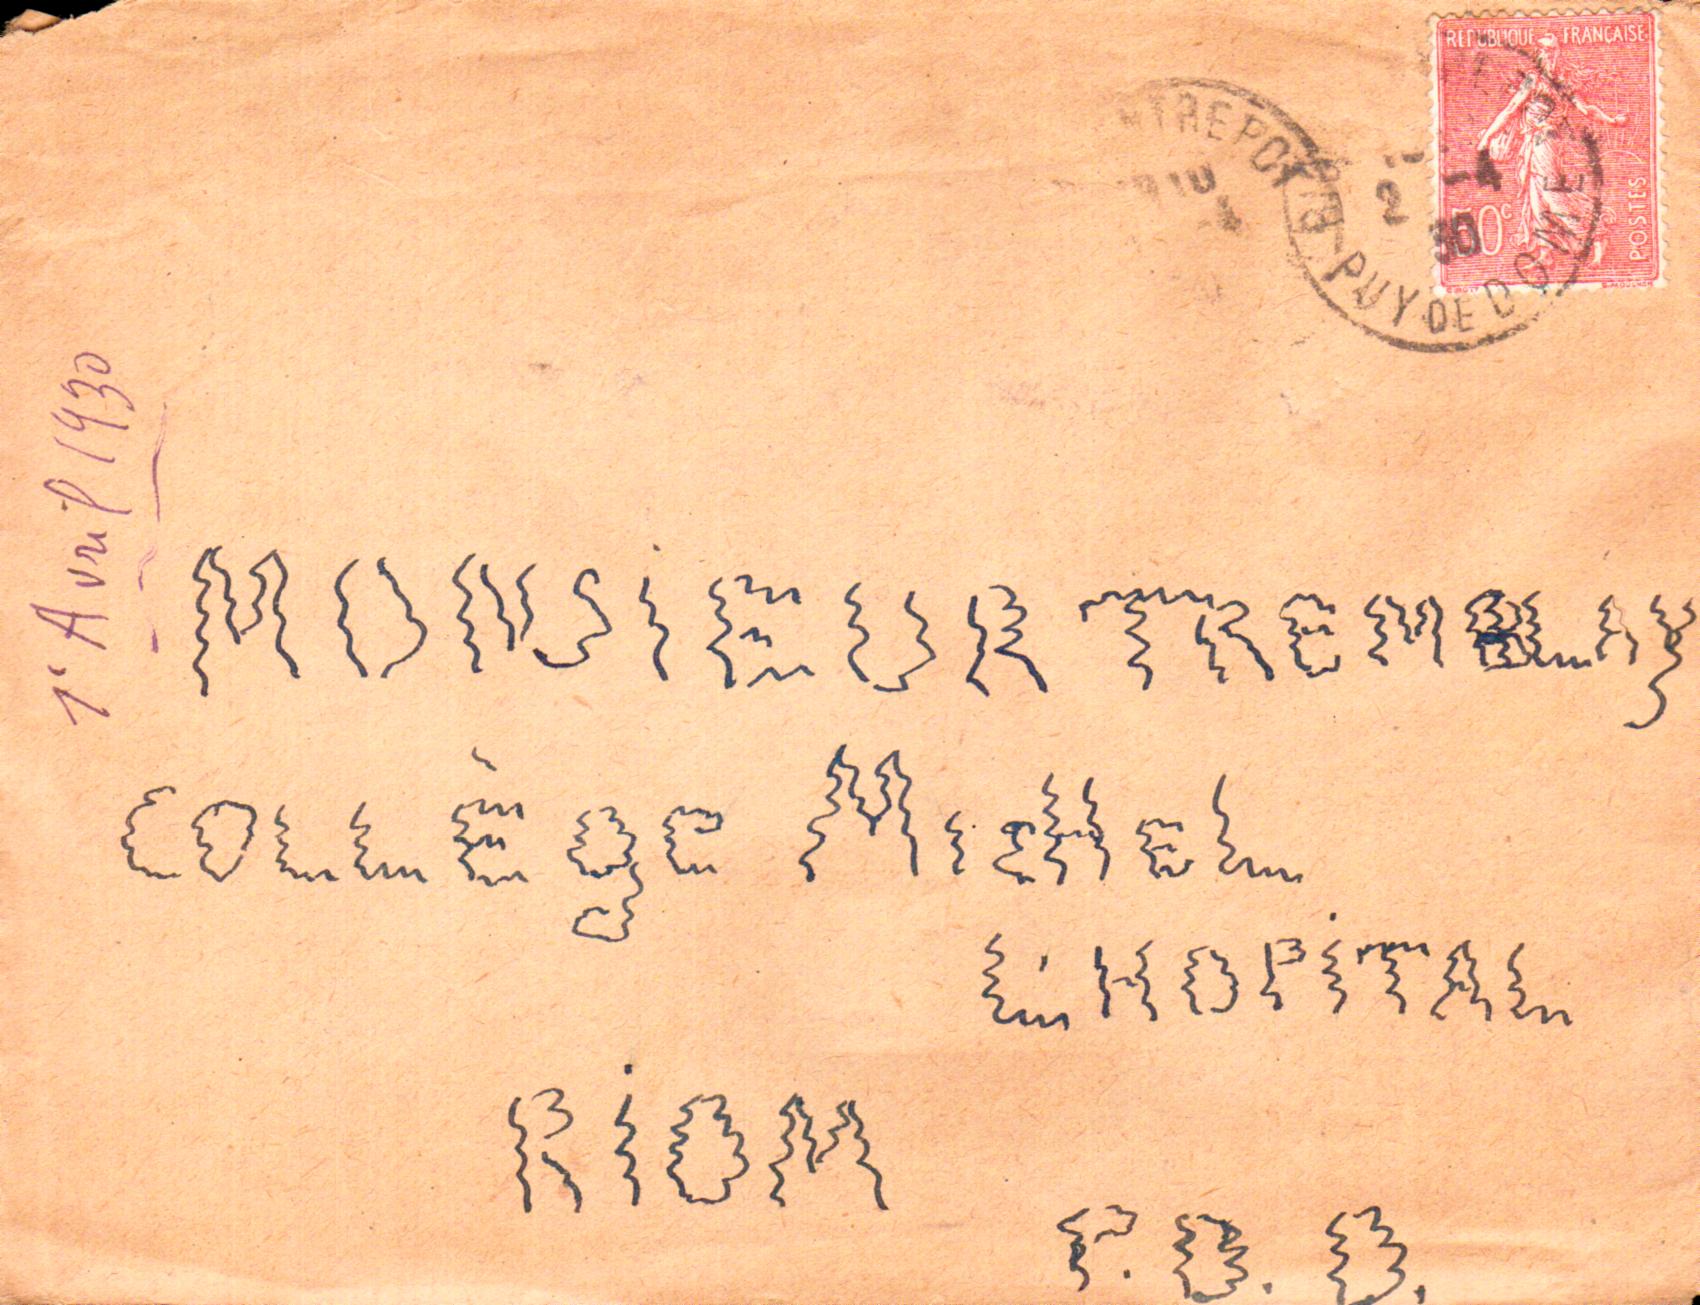 REPUBLIQUE FRANÇAISE
POSTES
50c
2 -4
30
PUY DE DOME
1er Avril 1930
MONSiEUR TREMBLAY
COLLÈge MicHeL
L'HOPiTAL
RiOM
P. D. D.